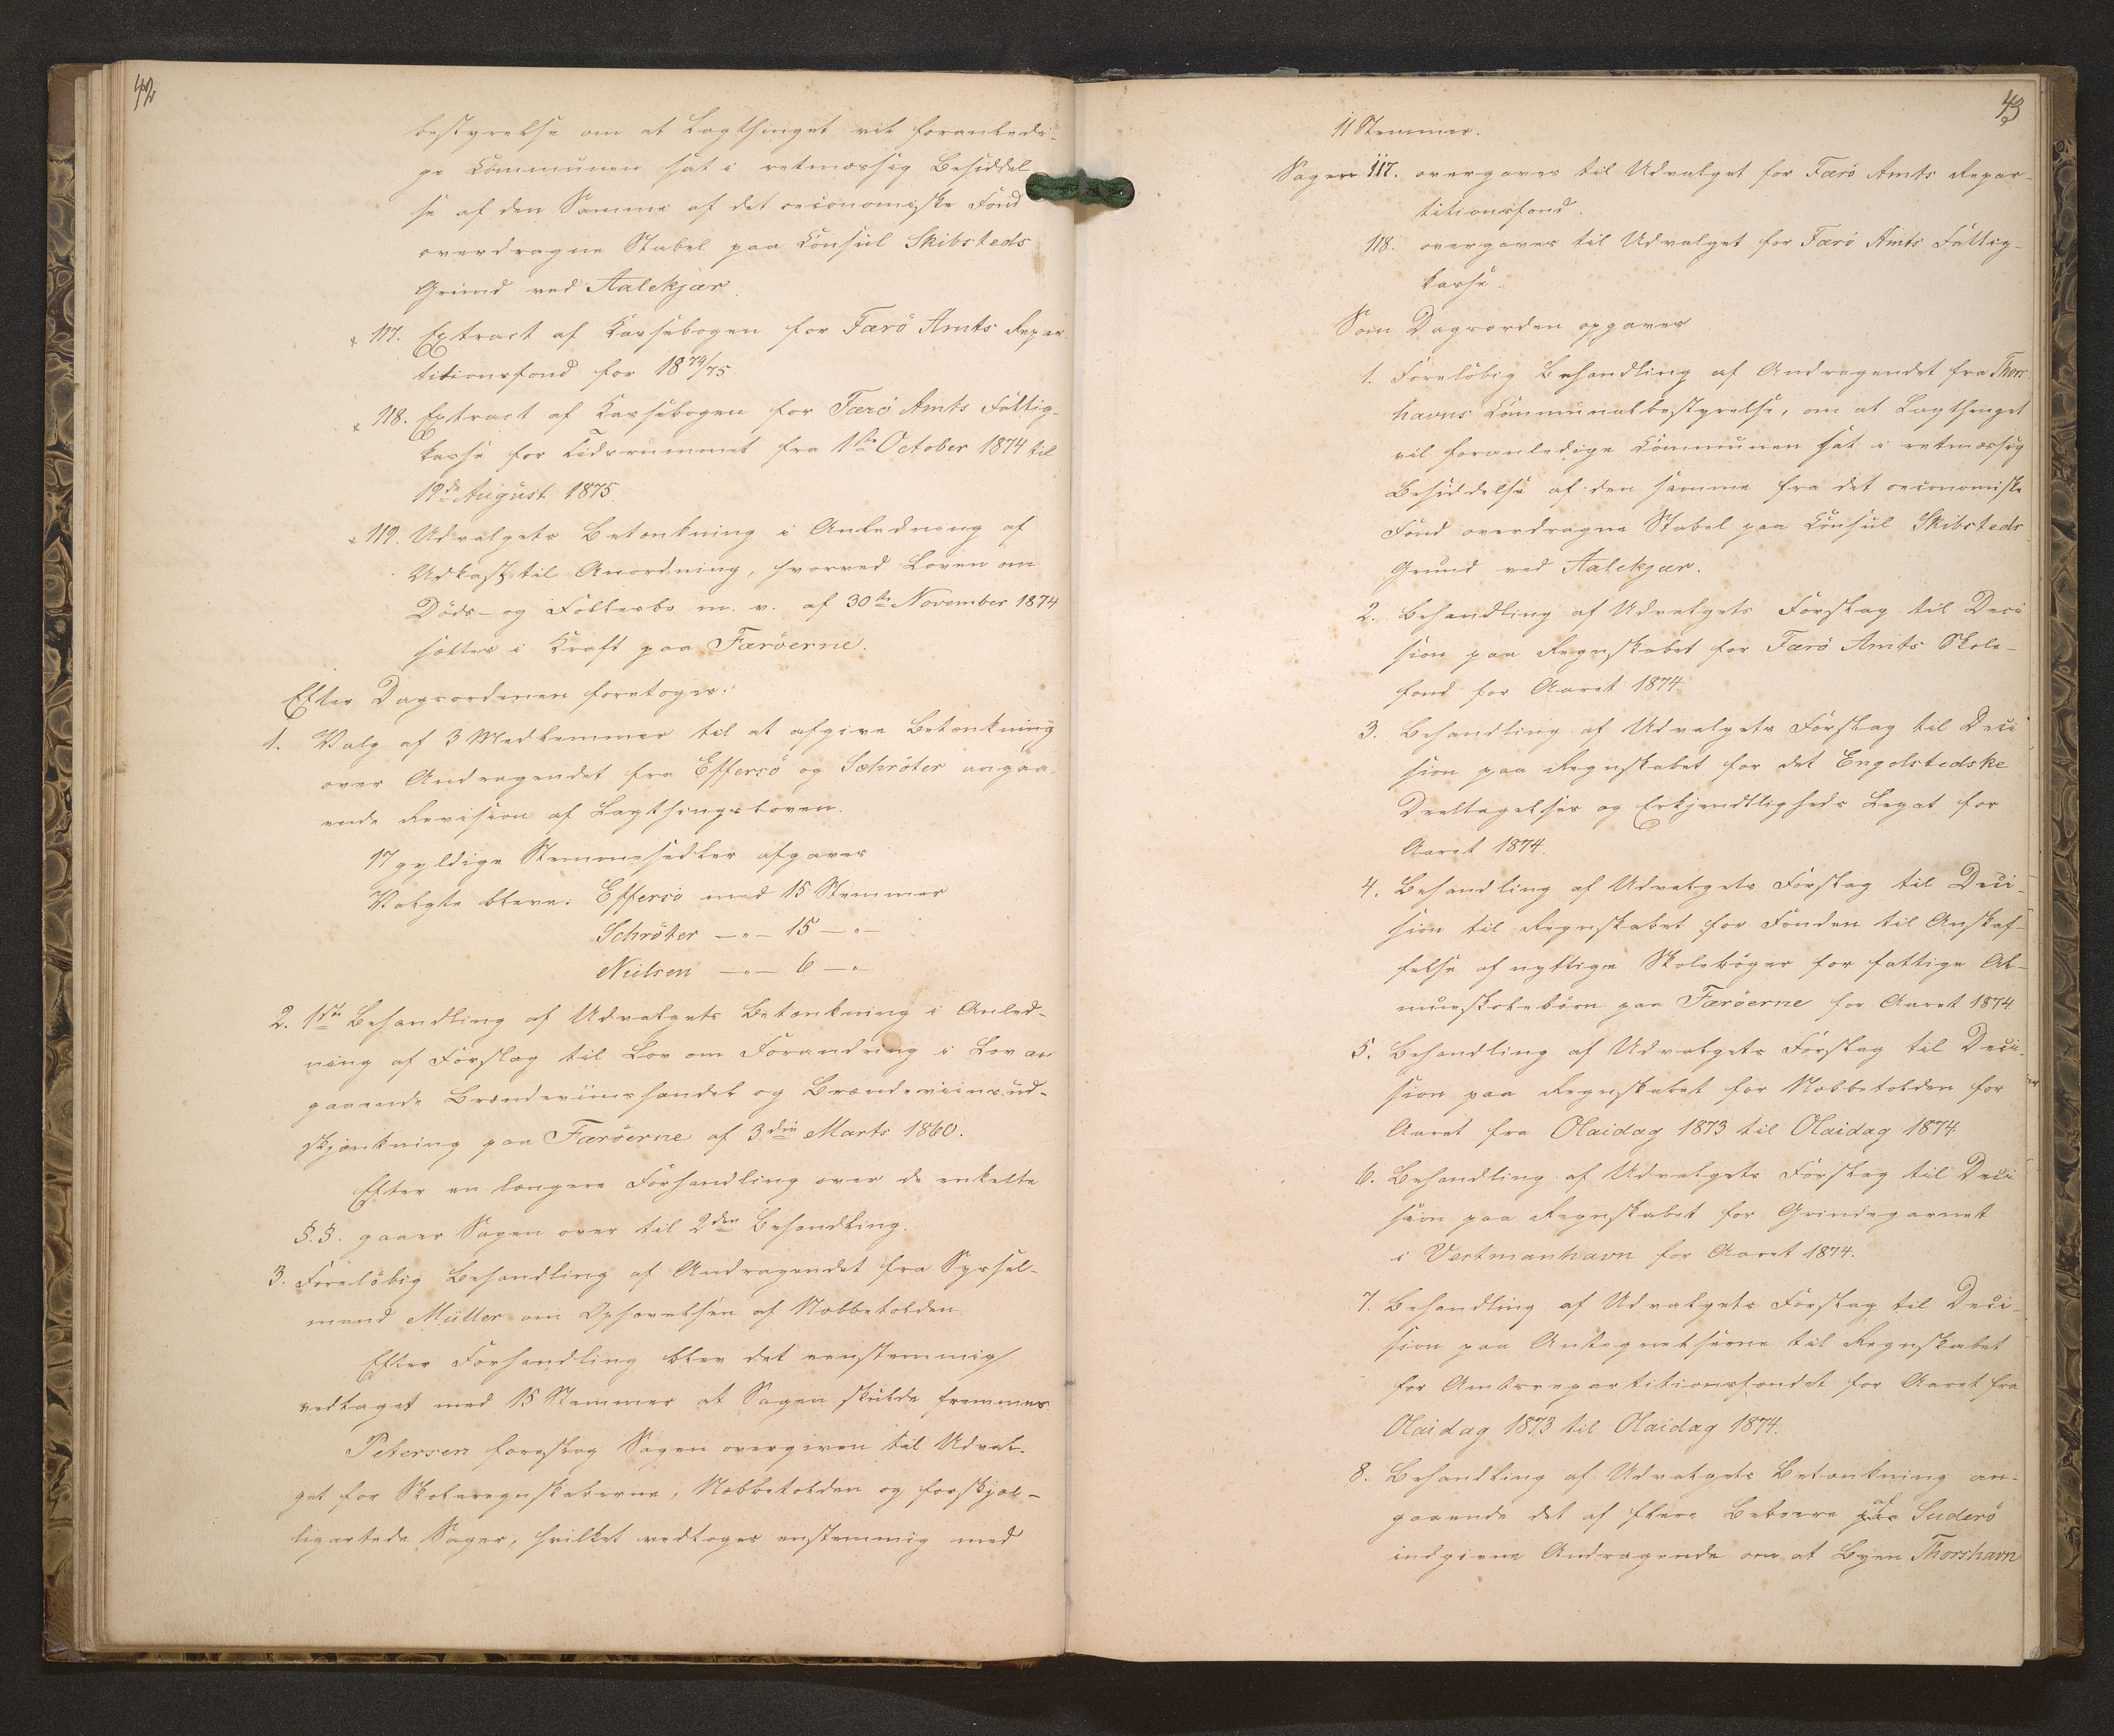 42
bestyrelse om at Lagthinget vil foranledi-
ge Communen sat i retmæssig Besiddel
se af den Samme af det oeconomiske Fond
overdragne Stabel paa Consul Skibsteds
Grund ved Aalekjær.
117. Extract af Kassebogen for Færö Amts Repar
titionsfond for 1874/75
118. Extract af Kassebogen for Færö Amts Fattig-
kasse for Tidsrummet fra 1ste October 1874 til
19de August 1875.
119. Udvalgets Betænkning i Anledning af
Udkast til Anordning, hvorved Loven om
Döds- og Fællesbo m. v. af 30te November 1874
sættes i Kraft paa Færöerne.
Efter Dagsordenen foretoges:
1. Valg af 3 Medlemmer til at afgive Betænkning
over Andragendet fra Effersö og Schröter angaa
ende Revision af Lagthingsloven.
17 gyldige Stemmesedler afgaves
Valgte bleve: Effersö med 15 Stemmer
Schröter —"— 15 —"—
Nielsen —"— 6 —"—
2. 1ste Behandling af Udvalgets Betænkning i Anled-
ning af Forslag til Lov om Forandring i Lov an
gaaende Brændeviinshandel og Brændeviinsud-
skjænkning paa Færöerne af 3die Marts 1860.
Efter en længere Forhandling over de enkelte
§.§. gaaer Sagen over til 2den Behandling.
3. Forelöbig Behandling af Andragendet fra Syssel-
mand Müller om Ophævelsen af Næbbetolden
Efter Forhandling blev det eenstemmig
vedtaget med 15 Stemmer at Sagen skulde fremmes.
Petersen foreslog Sagen overgiven til Udval-
get for Skoleregnskaberne, Næbbetolden og forskjæl-
ligartede Sager, hvilket vedtoges enstemmig med
43
11 Stemmer.
Sagen 117. overgaves til Udvalget for Færö Amts Repar-
titionsfond.
118. overgaves til Udvalget for Færö Amts Fattig-
kasse.
Som Dagsorden opgaves
1. Forelöbig Behandling af Andragendet fra Thors
havns Communalbestyrelse, om at Lagthinget
vil foranledige Communen sat i retmæssig
Besiddelse af den samme fra det oeconomiske
Fond overdragne Stabel paa Consul Skibsteds
Grund ved Aalekjær.
2. Behandling af Udvalgets Forslag til Deci
sion paa Regnskabet for Færö Amts Skole-
fond for Aaret 1874
3. Behandling af Udvalgets Forslag til Deci
sion paa Regnskabet for det Engelstedske
Deeltagelses og Erkjendtligheds Legat for
Aaret 1874.
4. Behandling af Udvalgets Forslag til Deci-
sion til Regnskabet for Fonden til Anskaf-
felse af nyttige Skoleböger for fattige Al-
mueskolebörn paa Færöerne for Aaret 1874
5. Behandling af Udvalgets Forslag til Deci-
sion paa Regnskabet for Næbbetolden for
Aaret fra Olaidag 1873 til Olaidag 1874.
6. Behandling af Udvalgets Forslag til Deci
sion paa Regnskabet for Grindegarnet
i Vestmanhavn for Aaret 1874.
7. Behandling af Udvalgets Forslag til Deci-
sion paa Antegnelserne til Regnskabet
for Amtsrepartitionsfondet for Aaret fra
Olaidag 1873 til Olaidag 1874.
8. Behandling af Udvalgets Betænkning an-
gaaende det af flere Beboere af Suderö
indgivne Andragende om at Byen Thorshavn